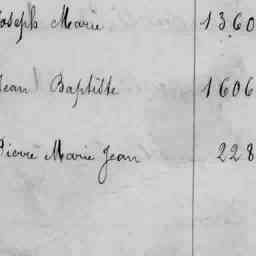 Joseph Marie 1360
Jean Baptiste 1606
Pierre Marie Jean 228